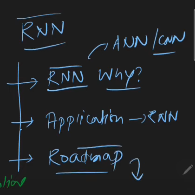 RNN
ANN/CNN
RNN Why?
Application → RNN
Roadmap